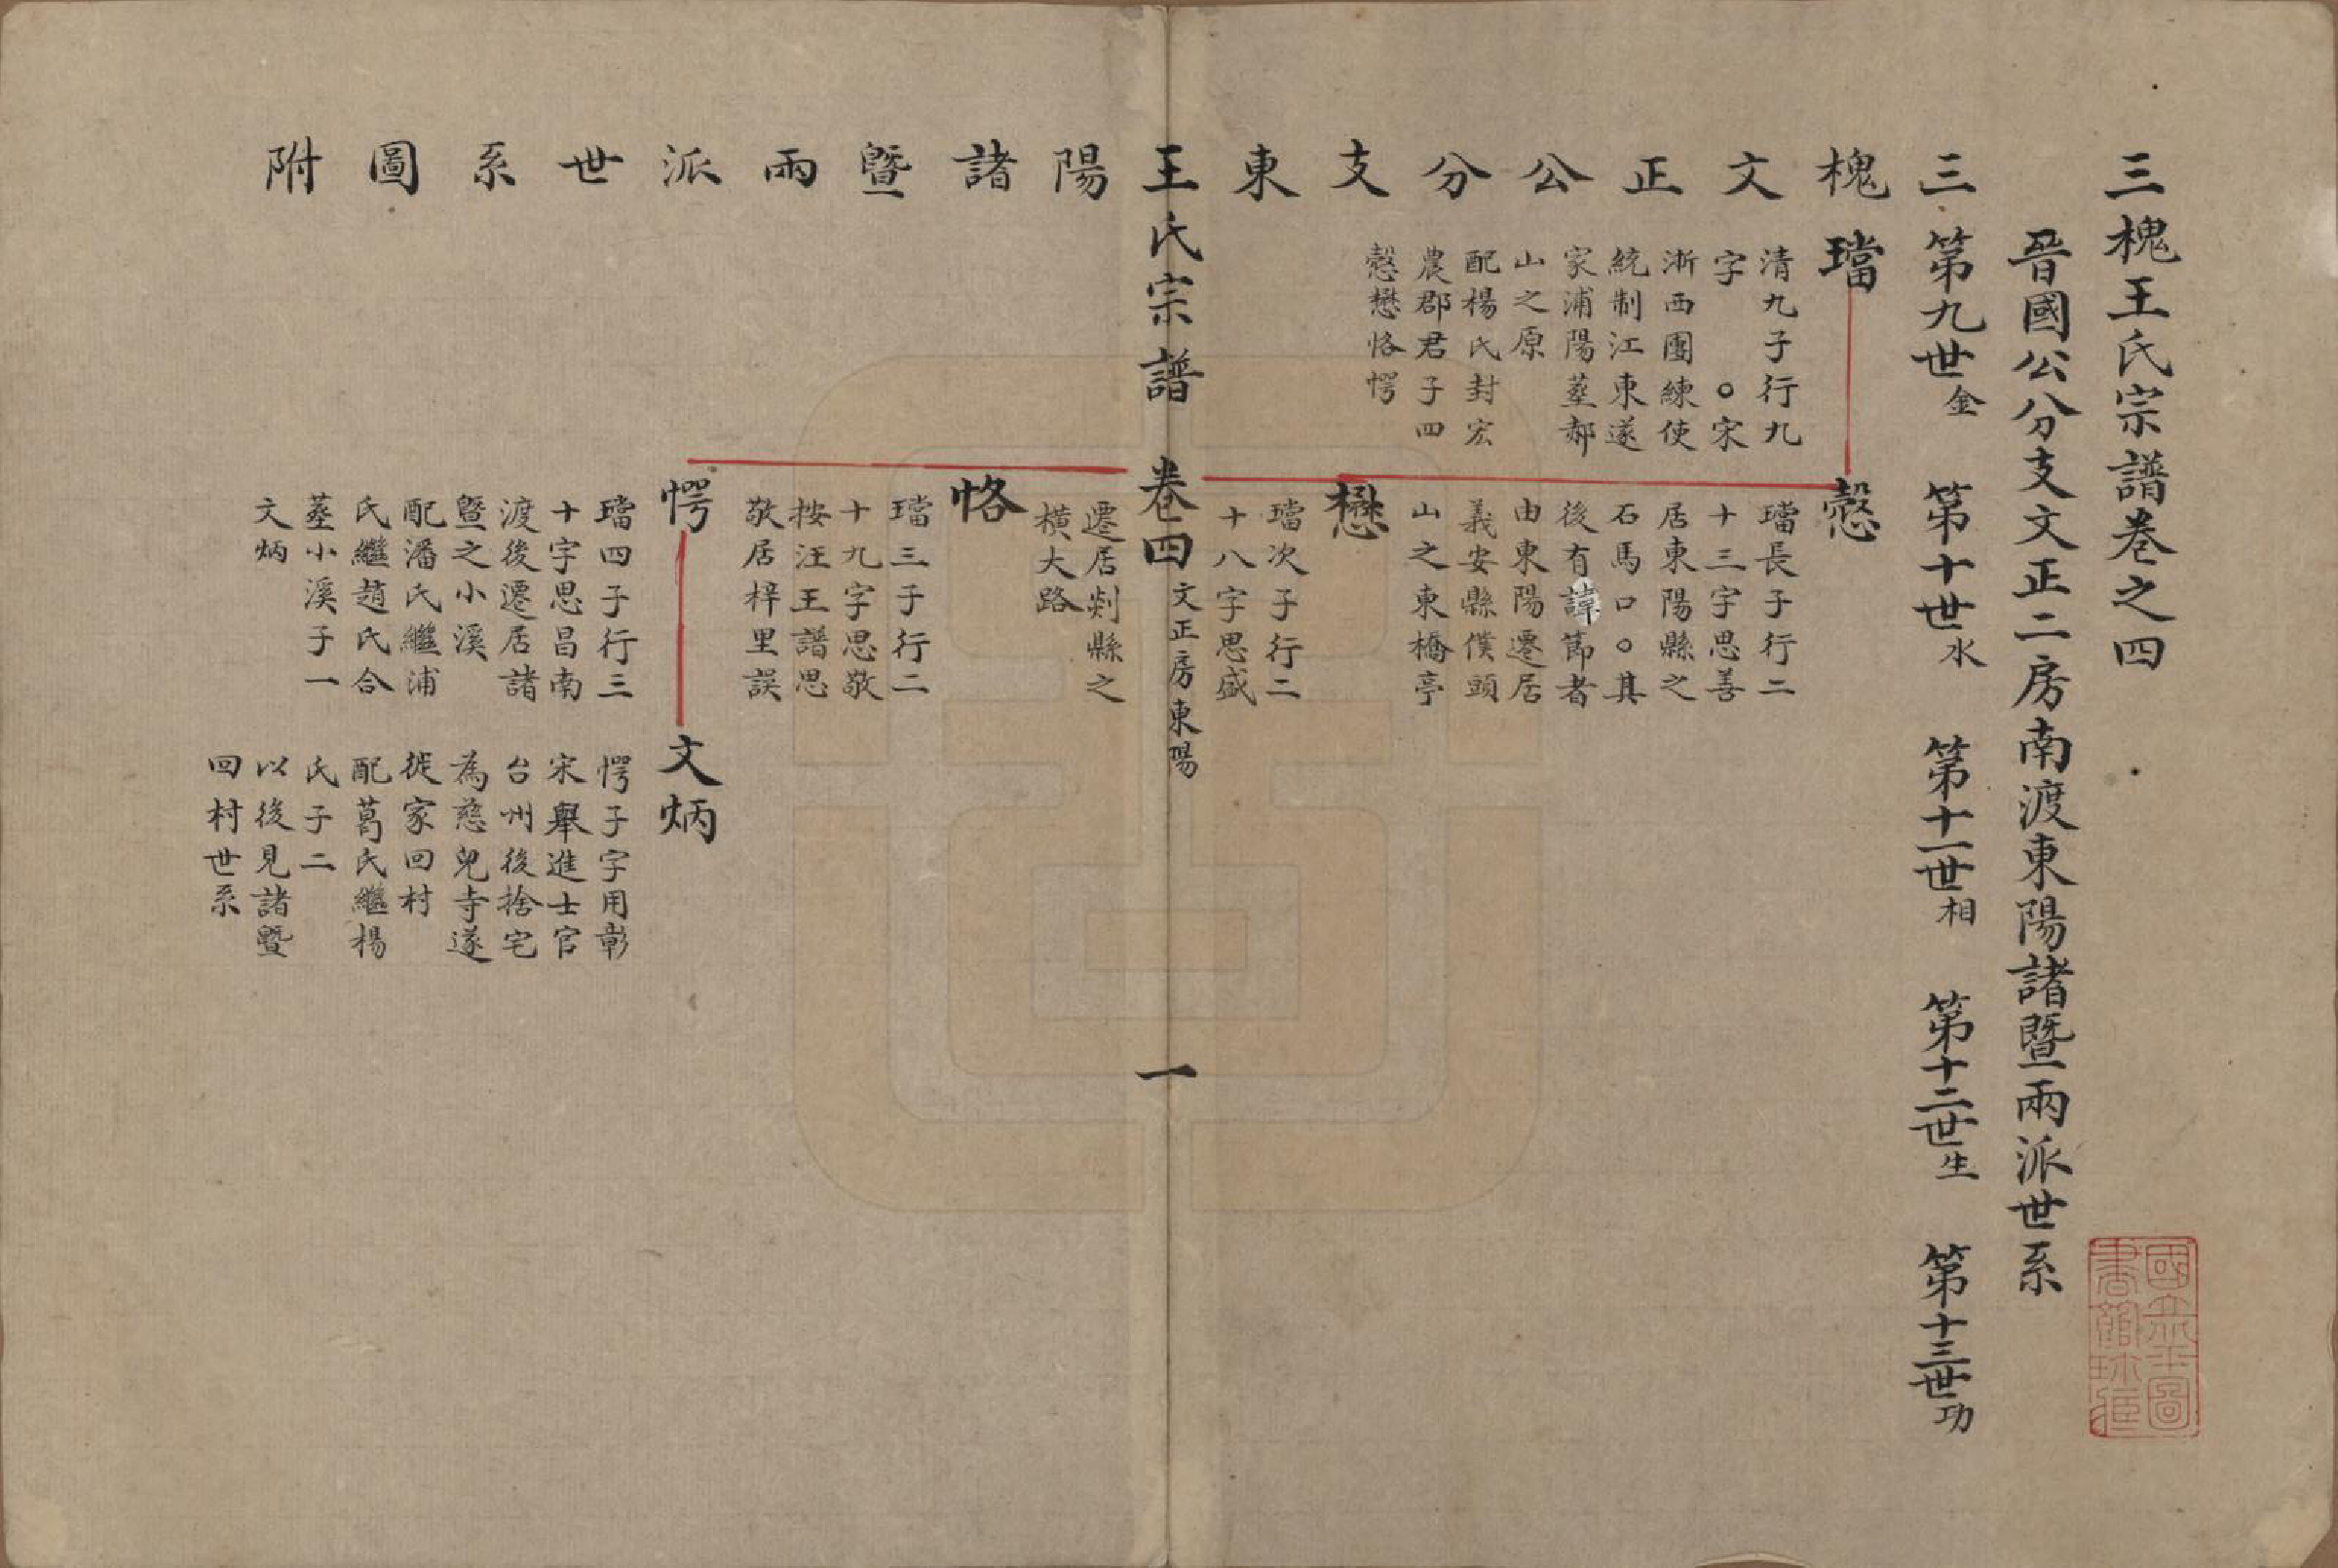 三槐王氏宗譜卷之四
晉國公公分支文正二房南渡東陽諸暨兩派世系
三槐文正公分支東陽諸暨兩派世系圖附
第九世金
第十世水
第十一世相
第十二世生
第十三世功
璫
清九子行九
字　○宋
淅西團練使
統制江東遂
家浦陽塟郝
山之原
配楊氏封宏
農郡君子四
愨懋恪愕
愨
璫長子行二
十三字思善
居東陽縣之
石馬口○其
後有諱節者
由東陽遷居
義安縣僕頭
山之東橋亭
懋
璫次子行二
十八字思盛
王氏宗譜　卷四文正房東陽　一
遷居剡縣之
橫大路
恪
璫三子行二
十九字思敬
按汪王譜思
敬居梓里誤
愕
璫四子行三
十字思昌南
渡後遷居諸
暨之小溪
配潘氏繼浦
氏繼趙氏合
塟小溪子一
文炳
文炳
愕子字用彰
宋舉進士官
台州後捨宅
為慈兒寺遂
徙家回村
配葛氏繼楊
氏子二
以後見諸暨
回村世系
國立北平圖
書館珍藏